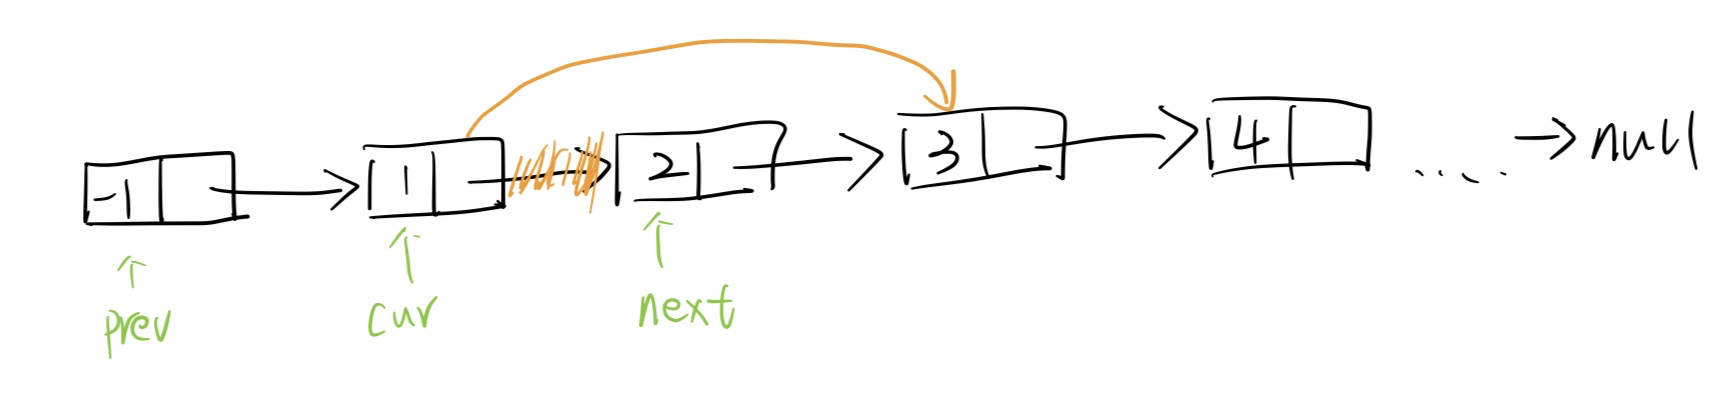 -1 1 2 3 4 ..... → null
prev cur next